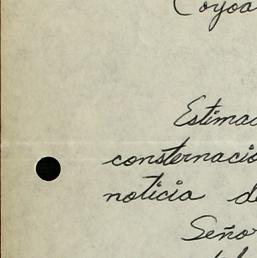 Coyoa
Estimad
consternació
noticia de
Señor